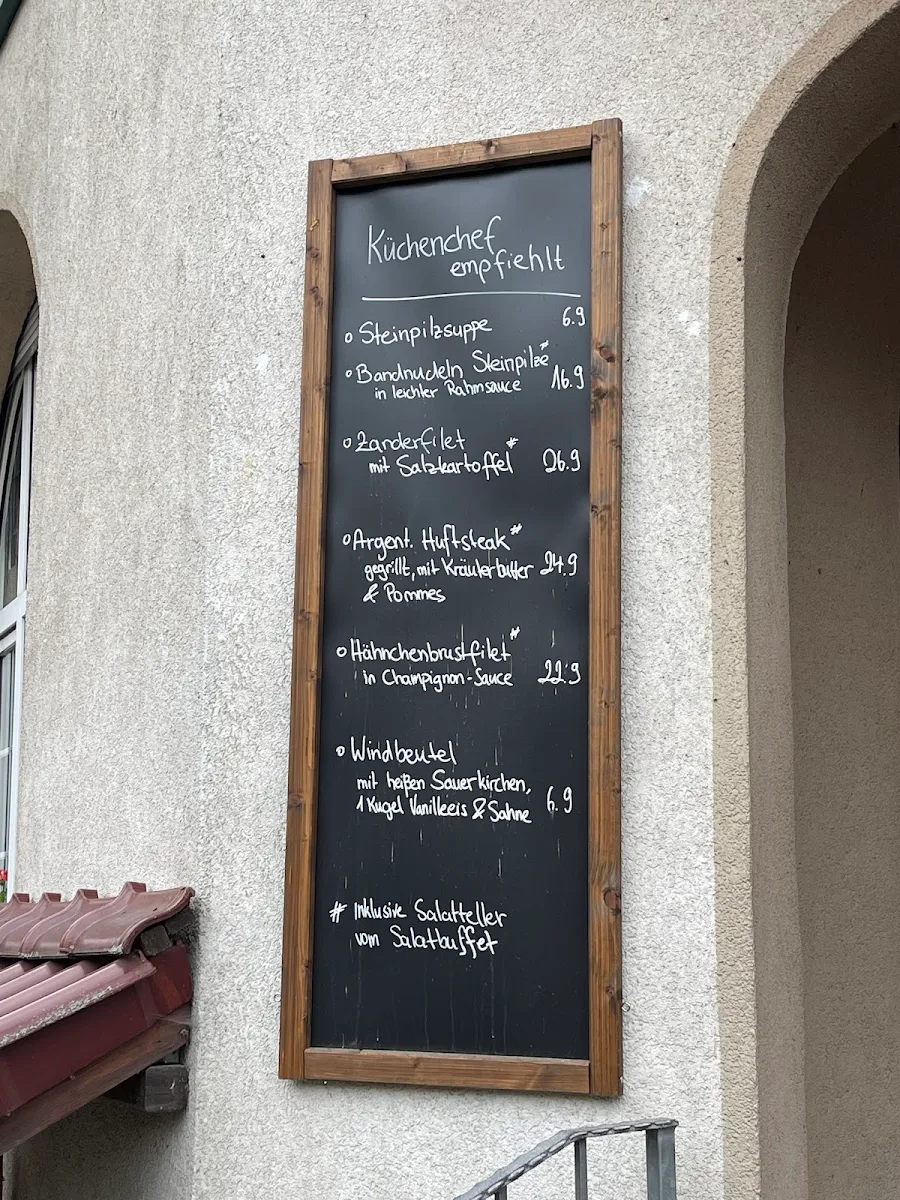 Küchenchef
empfiehlt
o Steinpilzsuppe 6.9
o Bandnudeln Steinpilze#
in leichter Rahmsauce 16.9
o Zanderfilet
mit Salzkartoffel# 26.9
o Argent. Huftsteak#
gegrillt, mit Kräuterbutter 24.9
& Pommes
o Hähnchenbrustfilet#
in Champignon-Sauce 22.9
o Windbeutel
mit heißen Sauerkirchen,
1 Kugel Vanilleeis & Sahne 6.9
# Inklusive Salatteller
vom Salatbuffet